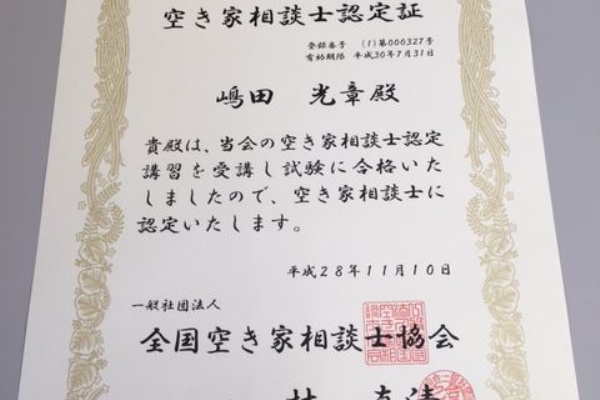 空き家相談士認定証
登録番号 (1)第000327号
有効期限 平成30年7月31日
嶋田 光章殿
貴殿は、当会の空き家相談士認定
講習を受講し試験に合格いた
しましたので、空き家相談士に
認定いたします。
平成28年11月10日
一般社団法人
全国空き家相談士協会
林 直清